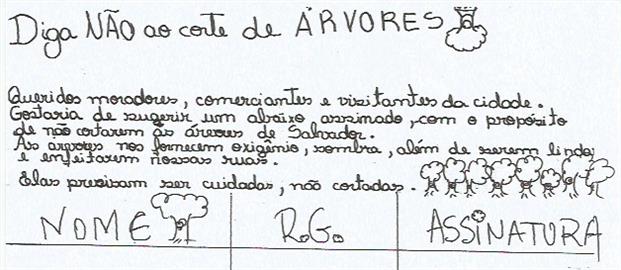 Diga NÃO ao corte de ÁRVORES
Queridos moradores, comerciantes e vizitantes da cidade.
Gostaria de sugerir um abaixo assinado, com o propósito
de não cortarem às árvores de Salvador.
As árvores nos fornecem oxigênio, sombra, além de serem lindas
e enfeitarem nossas ruas.
Elas precisam ser cuidadas, não cortadas.
NOME R.G. ASSINATURA